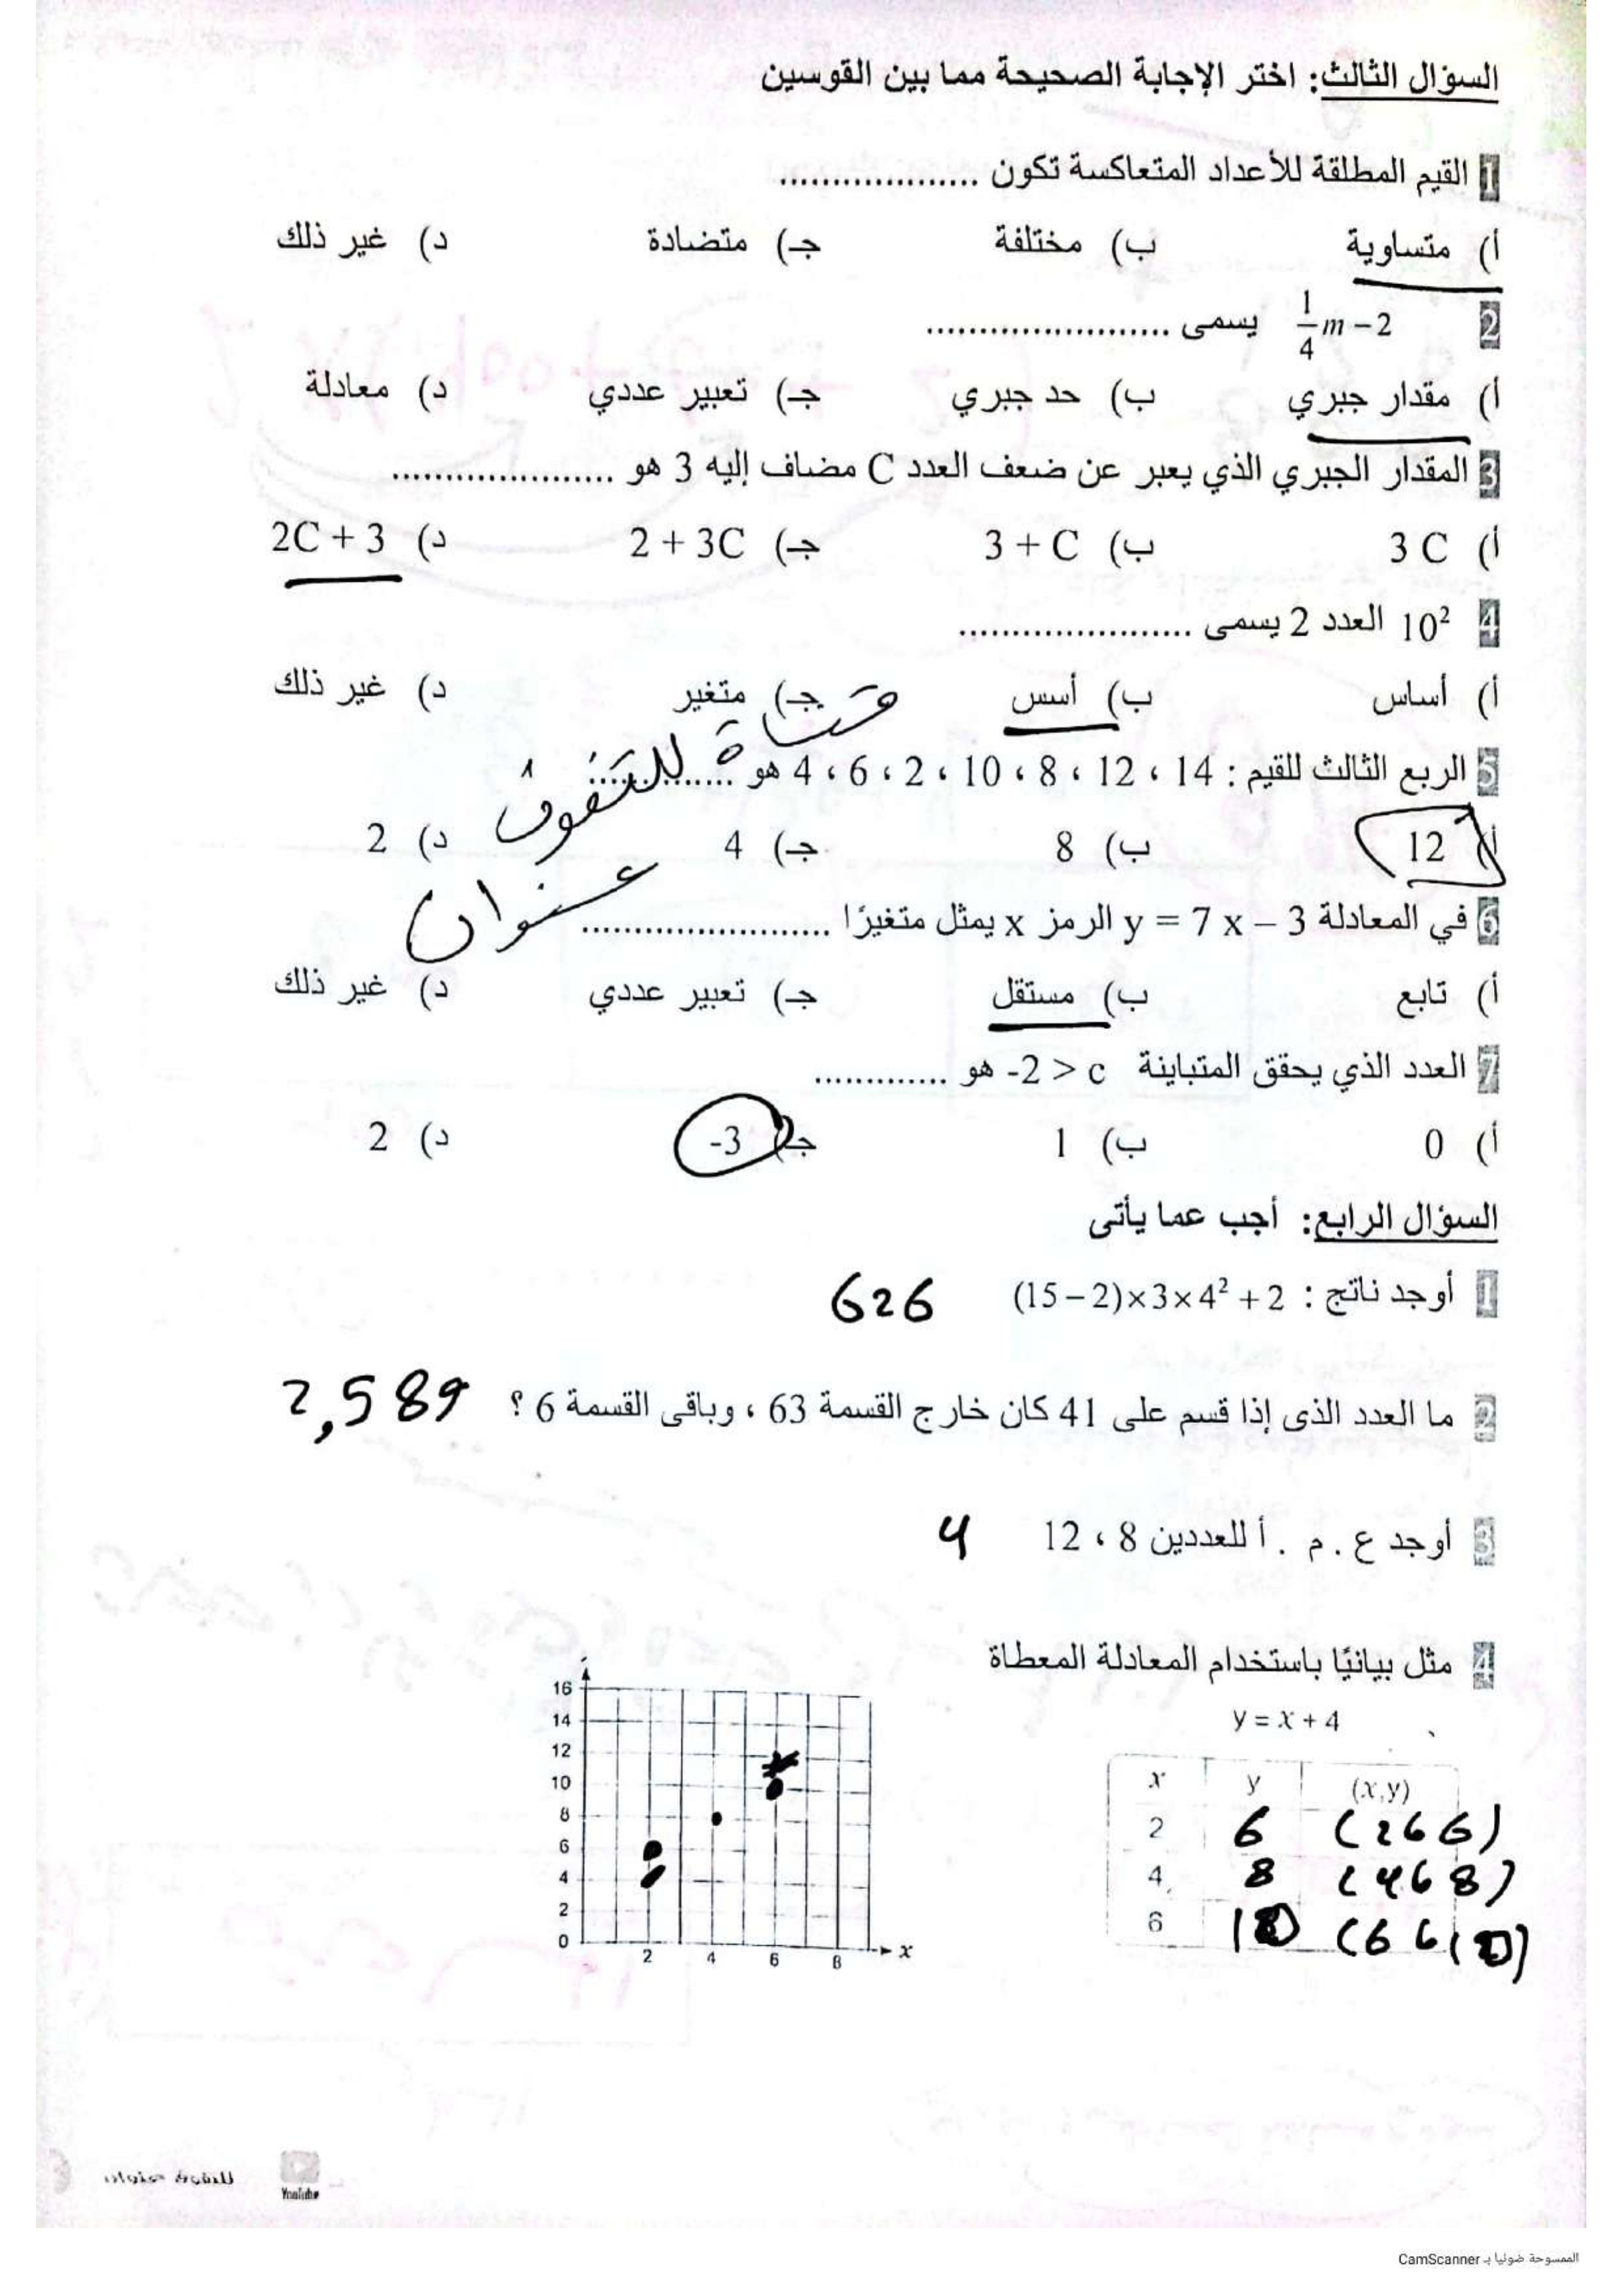 السؤال الثالث: اختر الإجابة الصحيحة مما بين القوسين
1 القيم المطلقة للأعداد المتعاكسة تكون ...................
أ) متساوية ب) مختلفة جـ) متضادة د) غير ذلك
2 $\frac{1}{4}m-2$ يسمى .......................
أ) مقدار جبري ب) حد جبري جـ) تعبير عددي د) معادلة
3 المقدار الجبري الذي يعبر عن ضعف العدد C مضاف إليه 3 هو .....................
أ) 3 C ب) 3 + C جـ) 2 + 3C د) 2C + 3
4 10² العدد 2 يسمى ......................
أ) أساس ب) أسس جـ) متغير د) غير ذلك
قناة للتفوق عنوان
5 الربع الثالث للقيم : 14 ، 12 ، 8 ، 10 ، 2 ، 6 ، 4 هو ..............
أ) 12 ب) 8 جـ) 4 د) 2
6 في المعادلة y = 7 x – 3 الرمز x يمثل متغيرًا ........................
أ) تابع ب) مستقل جـ) تعبير عددي د) غير ذلك
7 العدد الذي يحقق المتباينة -2 > c هو .............
أ) 0 ب) 1 جـ) -3 د) 2
السؤال الرابع: أجب عما يأتى
1 أوجد ناتج : (15−2)×3×4² + 2 626
2 ما العدد الذى إذا قسم على 41 كان خارج القسمة 63 ، وباقى القسمة 6 ؟ 2,589
3 أوجد ع . م . أ للعددين 8 ، 12 4
4 مثل بيانيًا باستخدام المعادلة المعطاة
y = x + 4
x y (x,y)
2 6 (2 6 6)
4 8 (4 6 8)
6 10 (6 6 10)
16
14
12
10
8
6
4
2
0
2 4 6 8 x
YouTube
للتفوق عنوان
الممسوحة ضوئيا بـ CamScanner